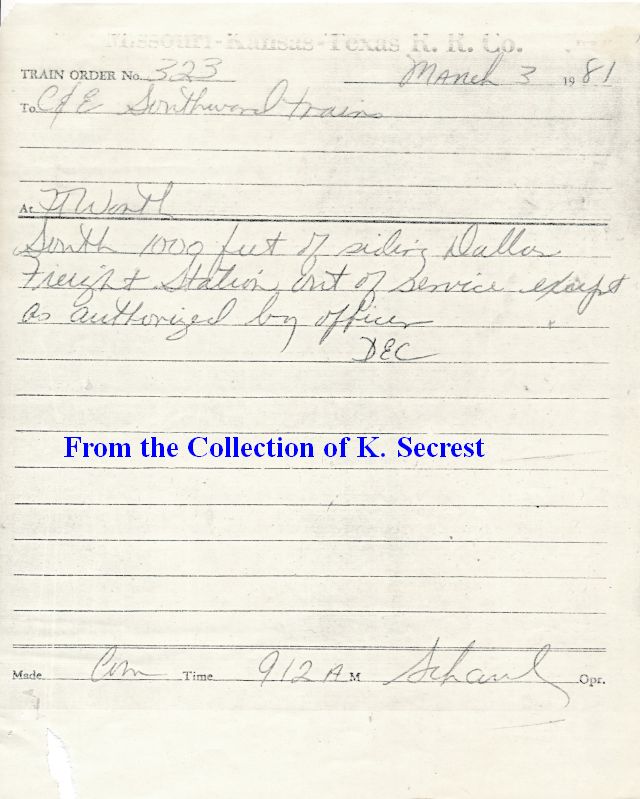 Missouri-Kansas-Texas R. R. Co.
TRAIN ORDER No. 323 March 3 1981
To C&E Southward trains
At Ft Worth
South 1000 feet of siding Dallas
Freight Station out of service except
as authorized by officer
DEC
From the Collection of K. Secrest
Made Com Time 912 A M Opr.